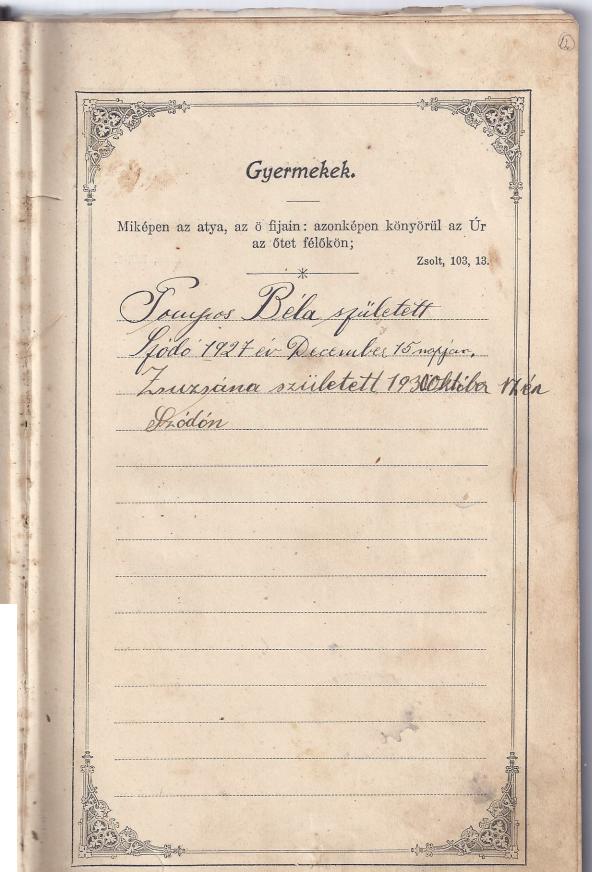 12
Gyermekek.
Miképen az atya, az ő fijain: azonképen könyörül az Úr
az őtet félőkön;
Zsolt, 103, 13.
Pompos Béla született
Sződő 1927 év December 15 napján.
Zsuzsána született 1930 Október 17.én
Sződőn